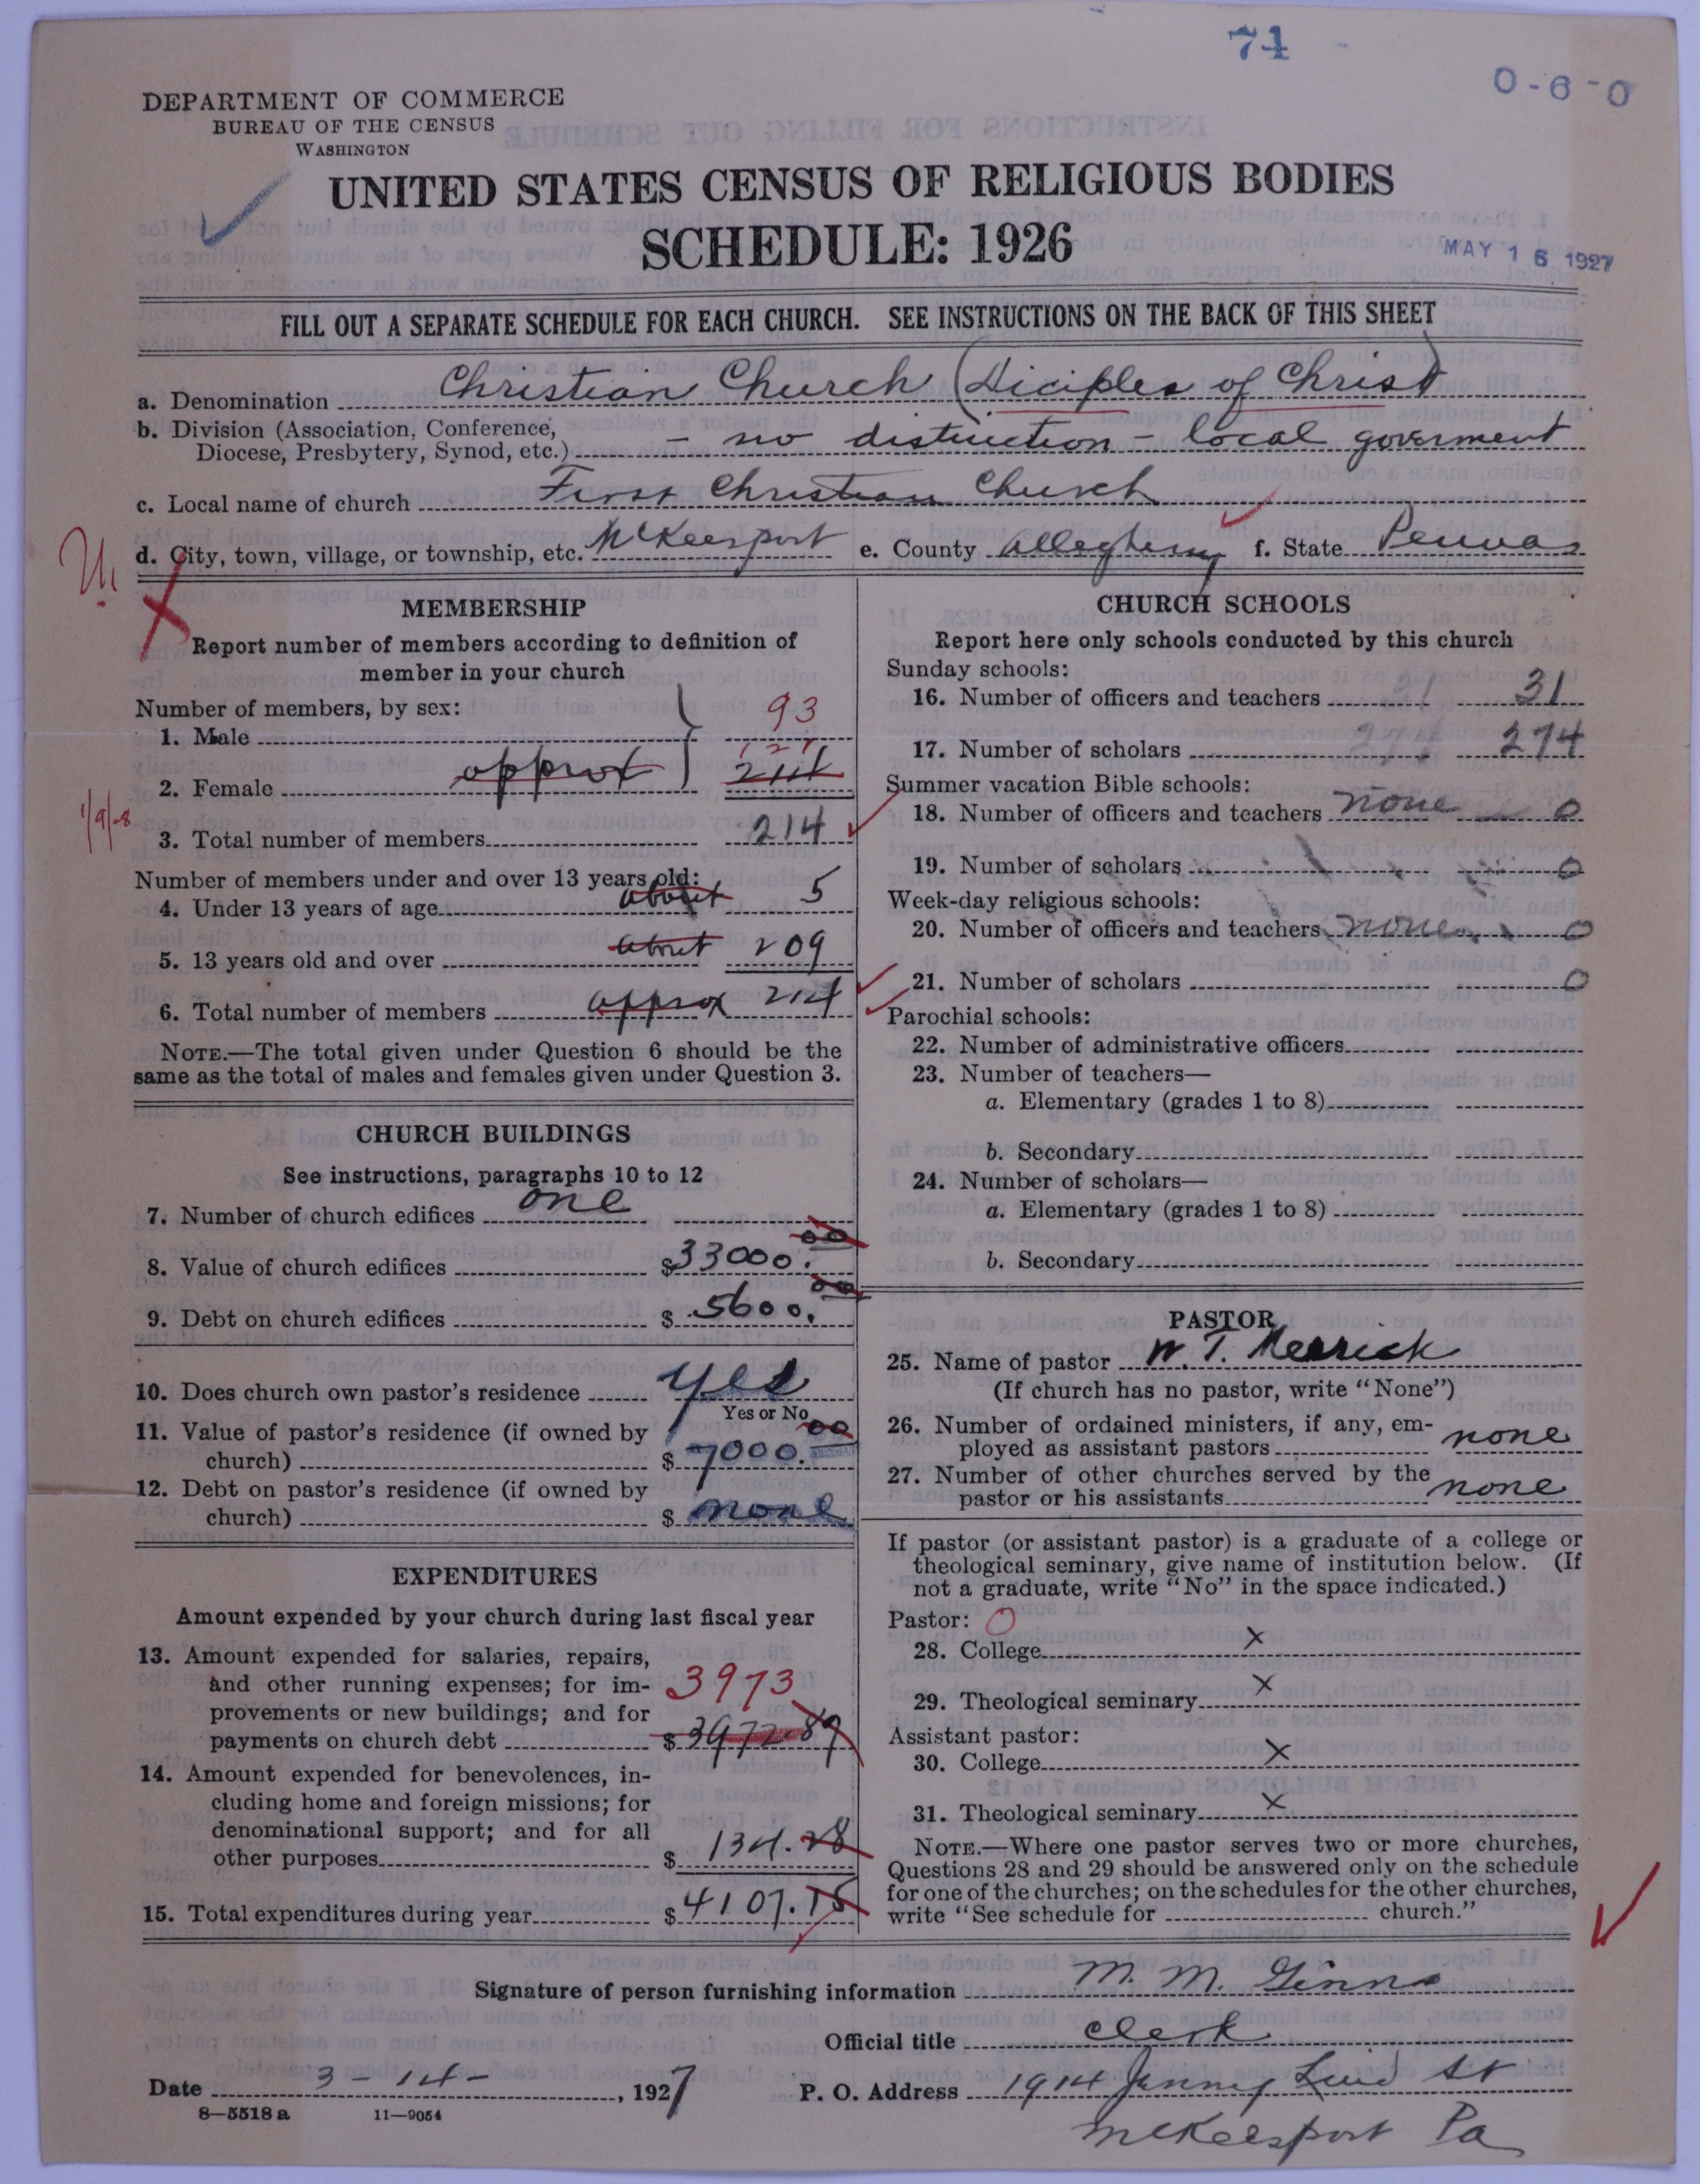 71
0-6-0
DEPARTMENT OF COMMERCE
BUREAU OF THE CENSUS
WASHINGTON
UNITED STATES CENSUS OF RELIGIOUS BODIES
SCHEDULE: 1926
MAY 16 1927
FILL OUT A SEPARATE SCHEDULE FOR EACH CHURCH. SEE INSTRUCTIONS ON THE BACK OF THIS SHEET
a. Denomination Christian Church (Diciples of Christ)
b. Division (Association, Conference,
Diocese, Presbytery, Synod, etc.) - no distinction - local goverment
c. Local name of church First Christian Church
d. City, town, village, or township, etc. McKeesport e. County Allegheny f. State Penna
MEMBERSHIP
Report number of members according to definition of
member in your church
Number of members, by sex:
1. Male 93
2. Female approx 121 214
1/9/28
3. Total number of members 214
Number of members under and over 13 years old:
4. Under 13 years of age about 5
5. 13 years old and over about 209
6. Total number of members approx 214
NOTE.—The total given under Question 6 should be the
same as the total of males and females given under Question 3.
CHURCH BUILDINGS
See instructions, paragraphs 10 to 12
7. Number of church edifices one
8. Value of church edifices $33000.00
9. Debt on church edifices $5600.00
10. Does church own pastor's residence yes
Yes or No
11. Value of pastor's residence (if owned by
church) $7000.00
12. Debt on pastor's residence (if owned by
church) $ none
EXPENDITURES
Amount expended by your church during last fiscal year
13. Amount expended for salaries, repairs,
and other running expenses; for im-
3973
provements or new buildings; and for
payments on church debt $3972.87
14. Amount expended for benevolences, in-
cluding home and foreign missions; for
denominational support; and for all
other purposes $ 134.28
15. Total expenditures during year $4107.15
CHURCH SCHOOLS
Report here only schools conducted by this church
Sunday schools:
16. Number of officers and teachers 31 31
17. Number of scholars 274 274
Summer vacation Bible schools:
18. Number of officers and teachers none 0
19. Number of scholars 0
Week-day religious schools:
20. Number of officers and teachers none 0
21. Number of scholars 0
Parochial schools:
22. Number of administrative officers
23. Number of teachers—
a. Elementary (grades 1 to 8)
b. Secondary
24. Number of scholars—
a. Elementary (grades 1 to 8)
b. Secondary
PASTOR
25. Name of pastor W. T. Merrick
(If church has no pastor, write "None")
26. Number of ordained ministers, if any, em-
ployed as assistant pastors none
27. Number of other churches served by the
pastor or his assistants none
If pastor (or assistant pastor) is a graduate of a college or
theological seminary, give name of institution below. (If
not a graduate, write "No" in the space indicated.)
Pastor: O
28. College x
29. Theological seminary x
Assistant pastor:
30. College x
31. Theological seminary x
NOTE.—Where one pastor serves two or more churches,
Questions 28 and 29 should be answered only on the schedule
for one of the churches; on the schedules for the other churches,
write "See schedule for church."
Signature of person furnishing information M. M. Ginn
Official title Clerk
Date 3-14-, 1927 P. O. Address 1914 Jenny Lind St
8—5518 a 11—9054
McKeesport Pa